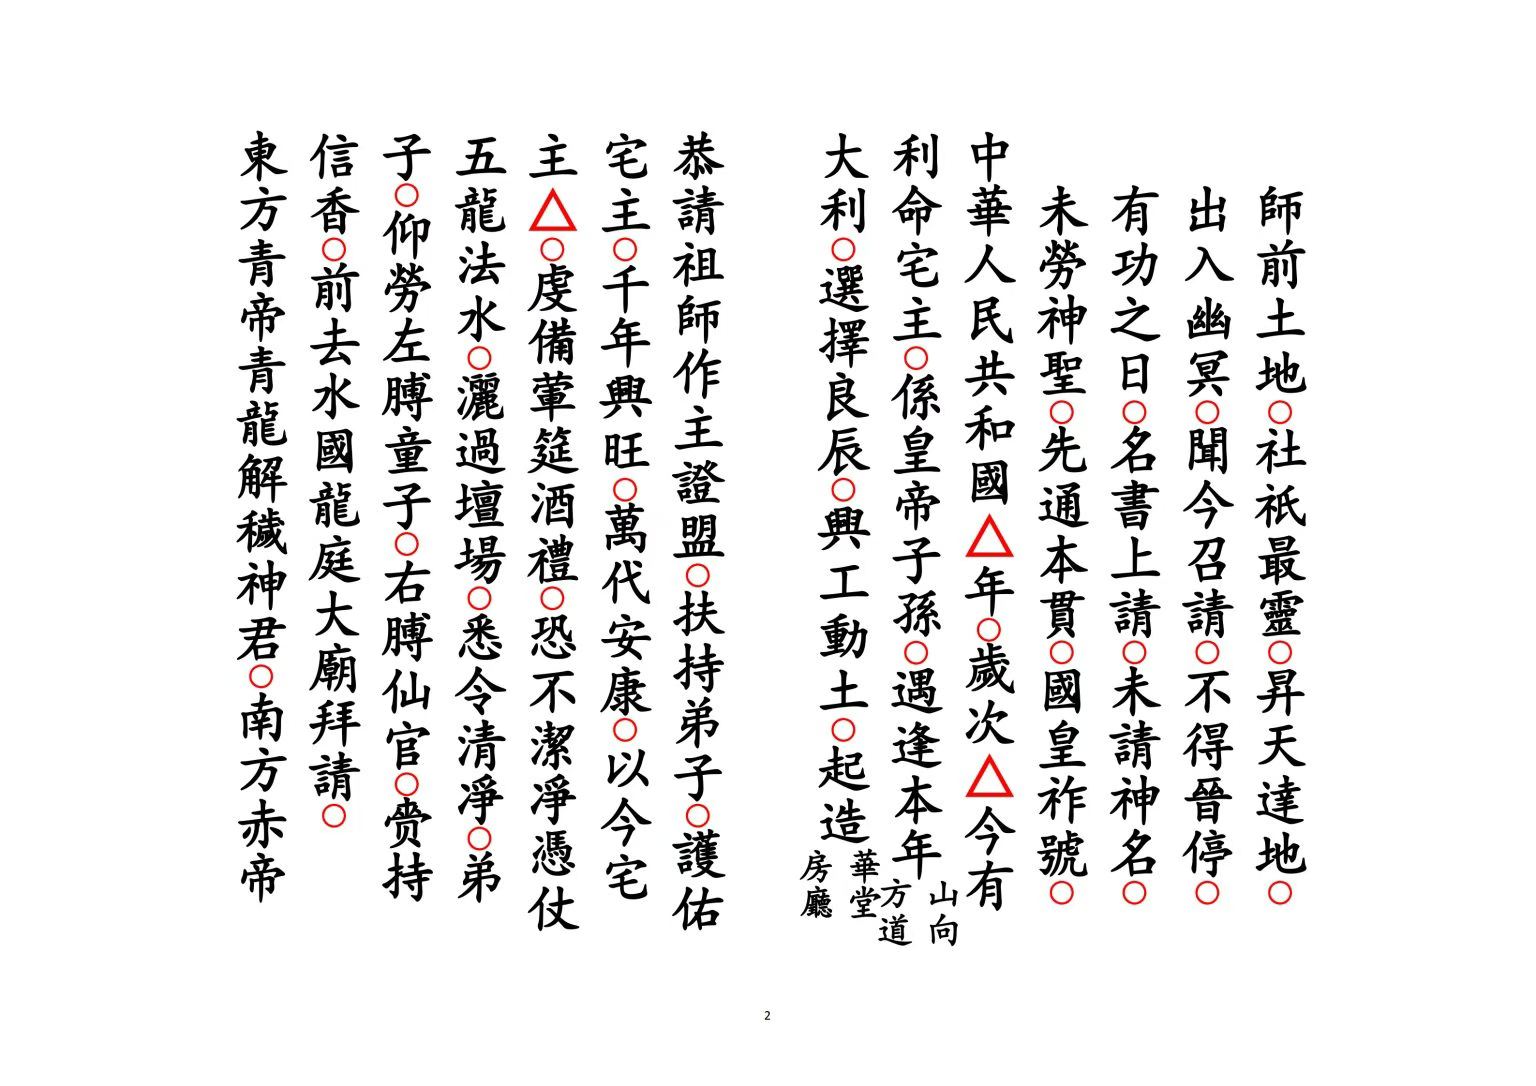 師前土地○社祇最靈○昇天達地○
出入幽冥○聞今召請○不得晉停○
有功之日○名書上請○未請神名○
未勞神聖○先通本貫○國皇祚號○
中華人民共和國△年○歲次△今有
利命宅主○係皇帝子孫○遇逢本年山向方道
大利○選擇良辰○興工動土○起造華堂房廳
恭請祖師作主證盟○扶持弟子○護佑
宅主○千年興旺○萬代安康○以今宅
主△○虔備葷筵酒禮○恐不潔凈憑仗
五龍法水○灑過壇場○悉令清凈○弟
子○仰勞左膊童子○右膊仙官○赍持
信香○前去水國龍庭大廟拜請○
東方青帝青龍解穢神君○南方赤帝
2